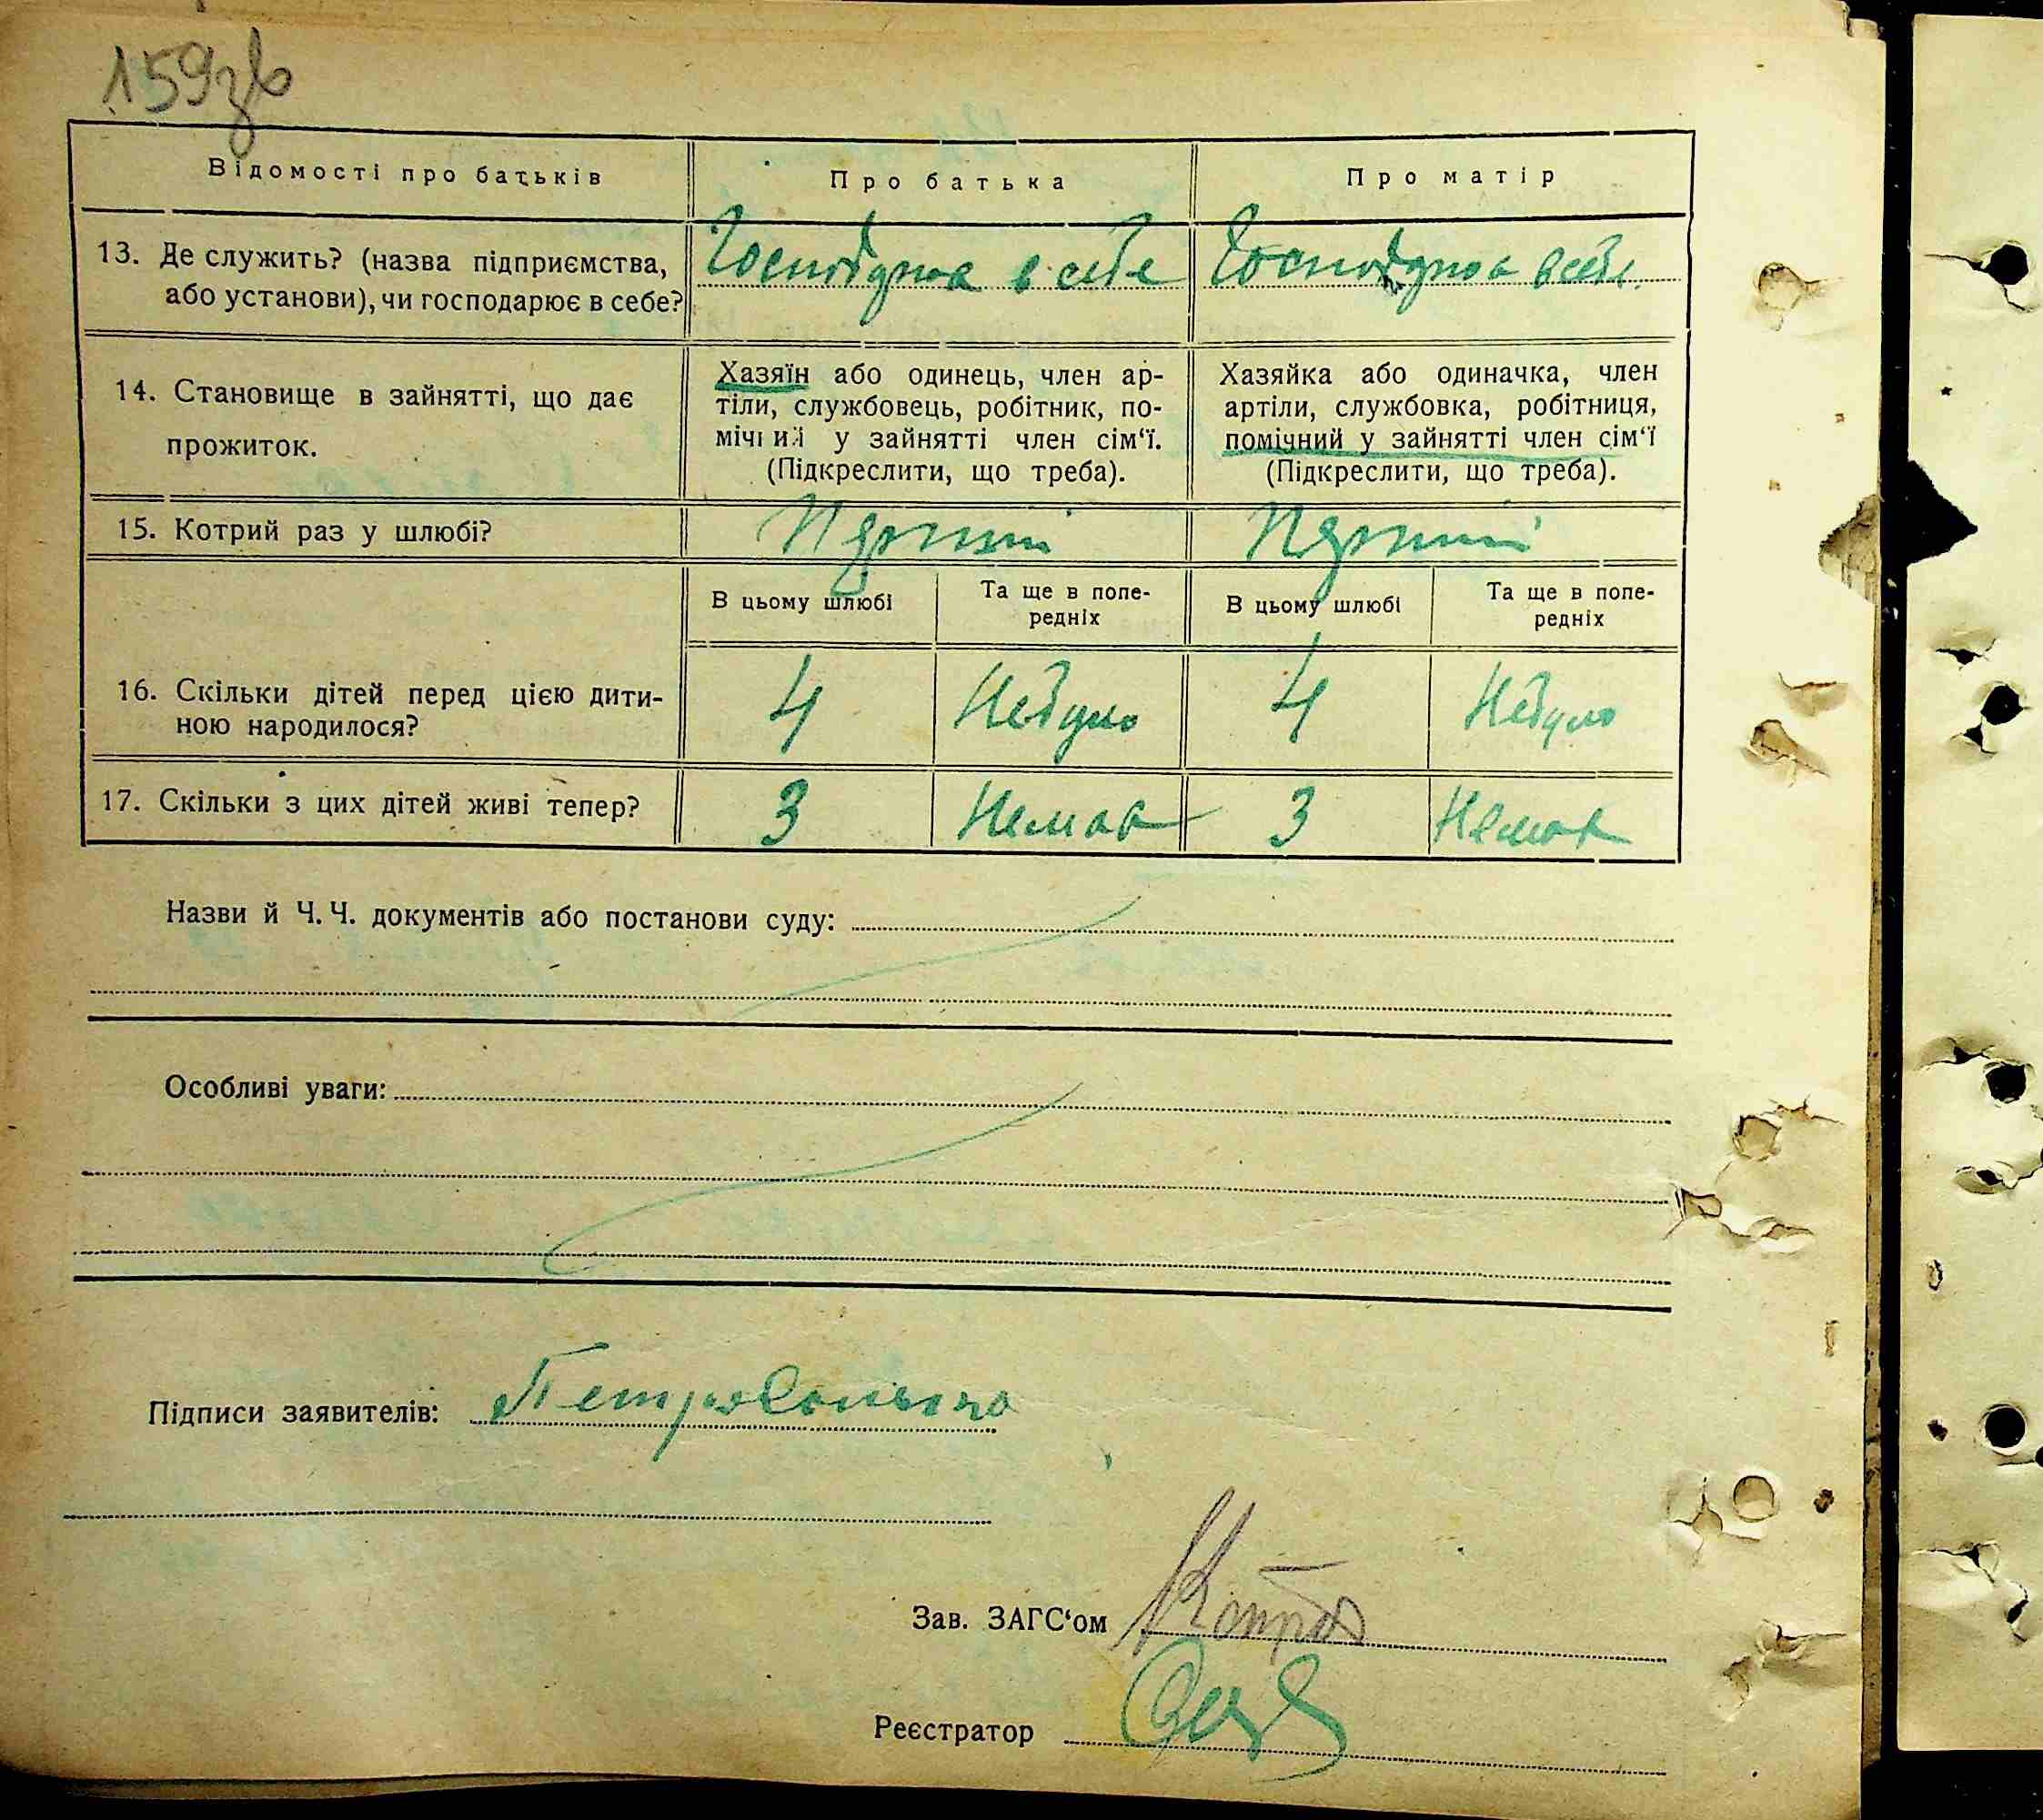 159зв
Відомості про батьків
Про батька
Про матір
13. Де служить? (назва підприємства,
або установи), чи господарює в себе?
Господарює в себе
Господарює в себе
14. Становище в зайнятті, що дає
прожиток.
Хазяїн або одинець, член ар-
тіли, службовець, робітник, по-
мічний у зайнятті член сім'ї.
(Підкреслити, що треба).
Хазяйка або одиначка, член
артіли, службовка, робітниця,
помічний у зайнятті член сім'ї
(Підкреслити, що треба).
15. Котрий раз у шлюбі?
Перший
Перший
В цьому шлюбі
Та ще в попе-
редніх
В цьому шлюбі
Та ще в попе-
редніх
16. Скільки дітей перед цією дити-
ною народилося?
4
Небуло
4
Небуло
17. Скільки з цих дітей живі тепер?
3
Немає
3
Немає
Назви й Ч. Ч. документів або постанови суду:
Особливі уваги:
Підписи заявителів:
Зав. ЗАГС'ом
Реєстратор